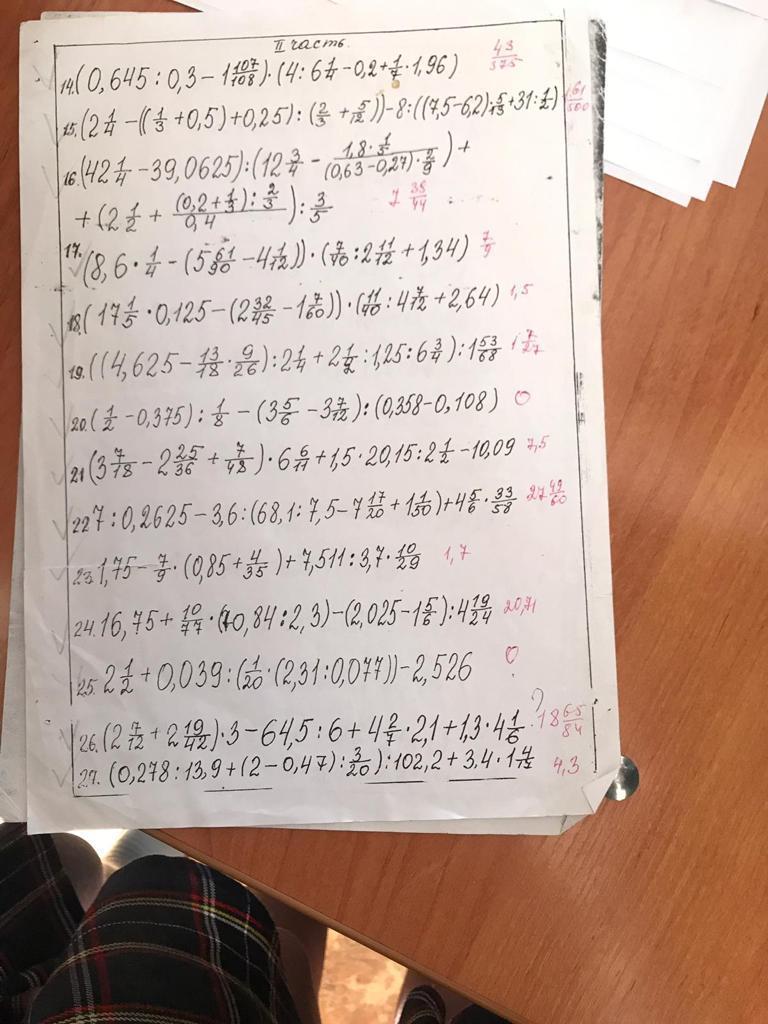 II часть.
14. (0,645 : 0,3 − 1 107/108) · (4 : 6 1/4 − 0,2 + 1/7 · 1,96) 43/375
15. (2 1/4 − ((1/3 + 0,5) + 0,25) : (2/3 + 5/12)) − 8 : ((7,5 − 6,2) : 5/13 + 31 : 1/2) 161/500
16. (42 1/4 − 39,0625) : (12 3/4 − (1,8 · 1/3)/((0,63 − 0,27) · 2/9)) +
+ (2 1/2 + ((0,2 + 1/3) : 2/3)/0,4) : 3/5 7 38/44
17. (8,6 · 1/4 − (5 61/90 − 4 1/12)) · (7/40 : 2 11/12 + 1,34) 7/9
18. (17 1/5 · 0,125 − (2 32/45 − 1 7/60)) · (11/40 : 4 7/12 + 2,64) 1,5
19. ((4,625 − 13/18 · 9/26) : 2 1/4 + 2 1/2 : 1,25 : 6 3/4) : 1 53/68 1 7/27
20. (1/2 − 0,375) : 1/8 − (3 5/6 − 3 7/12) : (0,358 − 0,108) 0
21 (3 7/18 − 2 25/36 + 7/48) · 6 6/11 + 1,5 · 20,15 : 2 1/2 − 10,09 7,5
22 7 : 0,2625 − 3,6 : (68,1 : 7,5 − 7 17/20 + 1 1/50) + 4 5/6 · 33/58 27 49/60
23. 1,75 − 7/9 · (0,85 + 4/35) + 7,511 : 3,7 · 10/29 1,7
24. 16,75 + 10/77 · (70,84 : 2,3) − (2,025 − 1 5/6) : 4 19/24 20,71
25. 2 1/2 + 0,039 : (1/20 · (2,31 : 0,077)) − 2,526 0
26. (2 7/12 + 2 19/42) · 3 − 64,5 : 6 + 4 2/7 · 2,1 + 1,3 · 4 1/6 ? 18 65/84
27. (0,278 : 13,9 + (2 − 0,47) : 3/20) : 102,2 + 3,4 · 1 4/17 4,3